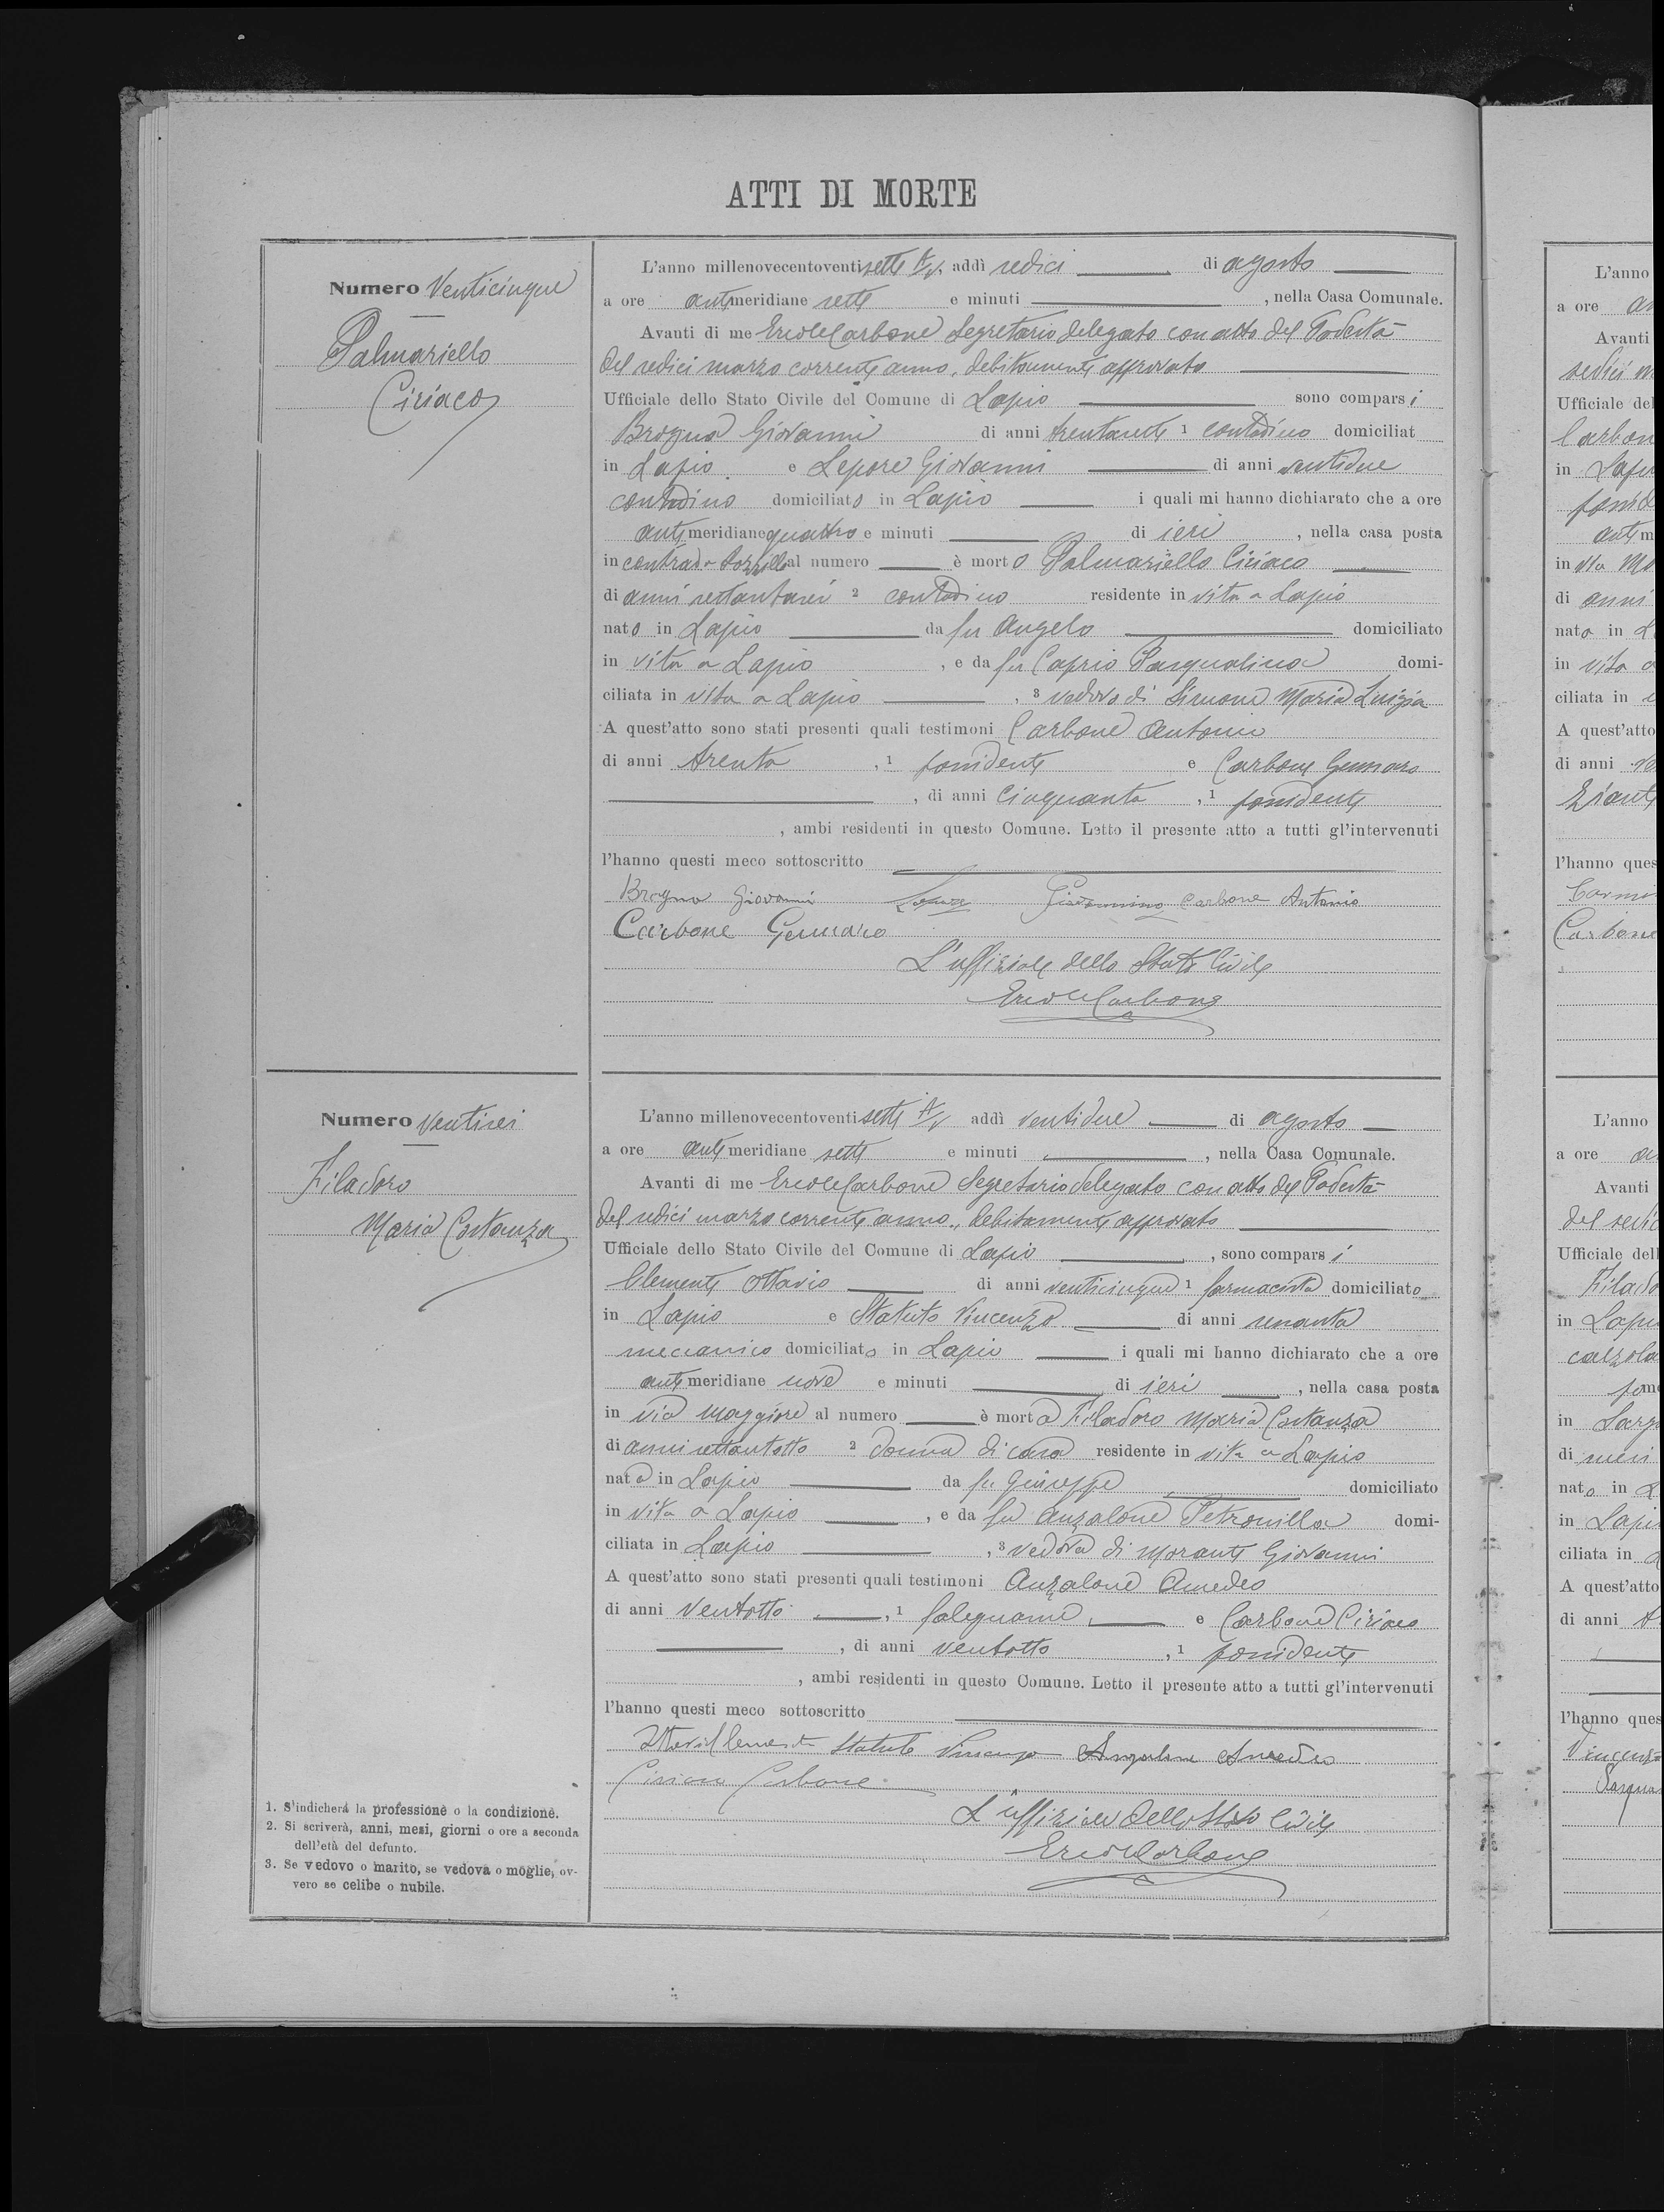 ATTI DI MORTE
Numero Venticinque
Palmariello
Ciriaco
L'anno millenovecentoventisette A. V. addì sedici di agosto
a ore antimeridiane sette e minuti , nella Casa Comunale.
Avanti di me Ercole Carbone Segretario delegato con atto del Podestà
del sedici marzo corrente anno, debitamente approvato
Ufficiale dello Stato Civile del Comune di Lapio sono comparsi
Brogna Giovanni di anni trentasette 1 contadino domiciliat
in Lapio e Lepore Giovanni di anni ventidue
contadino domiciliato in Lapio i quali mi hanno dichiarato che a ore
antimeridiane quattro e minuti di ieri , nella casa posta
in contrada al numero è morto Palmariello Ciriaco
di anni settantasei 2 contadino residente in vita a Lapio
nato in Lapio da fu Angelo domiciliato
in vita a Lapio , e da fu Caprio Pasqualina domi-
ciliata in vita a Lapio , 3 vedovo di Simone Maria Luigia
A quest'atto sono stati presenti quali testimoni Carbone Antonio
di anni trenta , 1 possidente e Carbone Gennaro
, di anni cinquanta , 1 possidente
, ambi residenti in questo Comune. Letto il presente atto a tutti gl'intervenuti
l'hanno questi meco sottoscritto
Brogna Giovanni Lepore Giovannino Carbone Antonio
Carbone Gennaro
L'uffiziale dello Stato Civile
Ercole Carbone
Numero Ventisei
Filadoro
Maria Costanza
L'anno millenovecentoventisette A. V. addì ventidue di agosto
a ore antimeridiane sette e minuti , nella Casa Comunale.
Avanti di me Ercole Carbone Segretario delegato con atto del Podestà
del sedici marzo corrente anno, debitamente approvato
Ufficiale dello Stato Civile del Comune di Lapio , sono comparsi
Clemente Ottavio di anni venticinque 1 farmacista domiciliato
in Lapio e Statuto Vincenzo di anni sessanta
meccanico domiciliato in Lapio i quali mi hanno dichiarato che a ore
antimeridiane nove e minuti di ieri , nella casa posta
in via Maggiore al numero è morta Filadoro Maria Costanza
di anni settantotto 2 donna di casa residente in vita a Lapio
nata in Lapio da fu Giuseppe domiciliato
in vita a Lapio , e da fu Anzalone Petronilla domi-
ciliata in Lapio , 3 vedova di Morante Giovanni
A quest'atto sono stati presenti quali testimoni Anzalone Amedeo
di anni ventotto , 1 falegname e Carbone Ciriaco
, di anni ventotto , 1 possidente
, ambi residenti in questo Comune. Letto il presente atto a tutti gl'intervenuti
l'hanno questi meco sottoscritto
Ottavio Clemente Statuto Vincenzo Anzalone Amedeo
Ciriaco Carbone
L'uffiziale dello Stato Civile
Ercole Carbone
1. S'indicherà la professione o la condizione.
2. Si scriverà, anni, mesi, giorni o ore a seconda
dell'età del defunto.
3. Se vedovo o marito, se vedova o moglie, ov-
vero se celibe o nubile.
L'anno
a ore
Avanti
sedici
Ufficiale del
Carbon
in
in via
di anni
nato in
in vita
ciliata in
A quest'atto
di anni
l'hanno ques
Carbone
L'anno
a ore
Avanti
del
Ufficiale dell
in
di mesi
nato in
in
ciliata in
A quest'atto
di anni
l'hanno ques